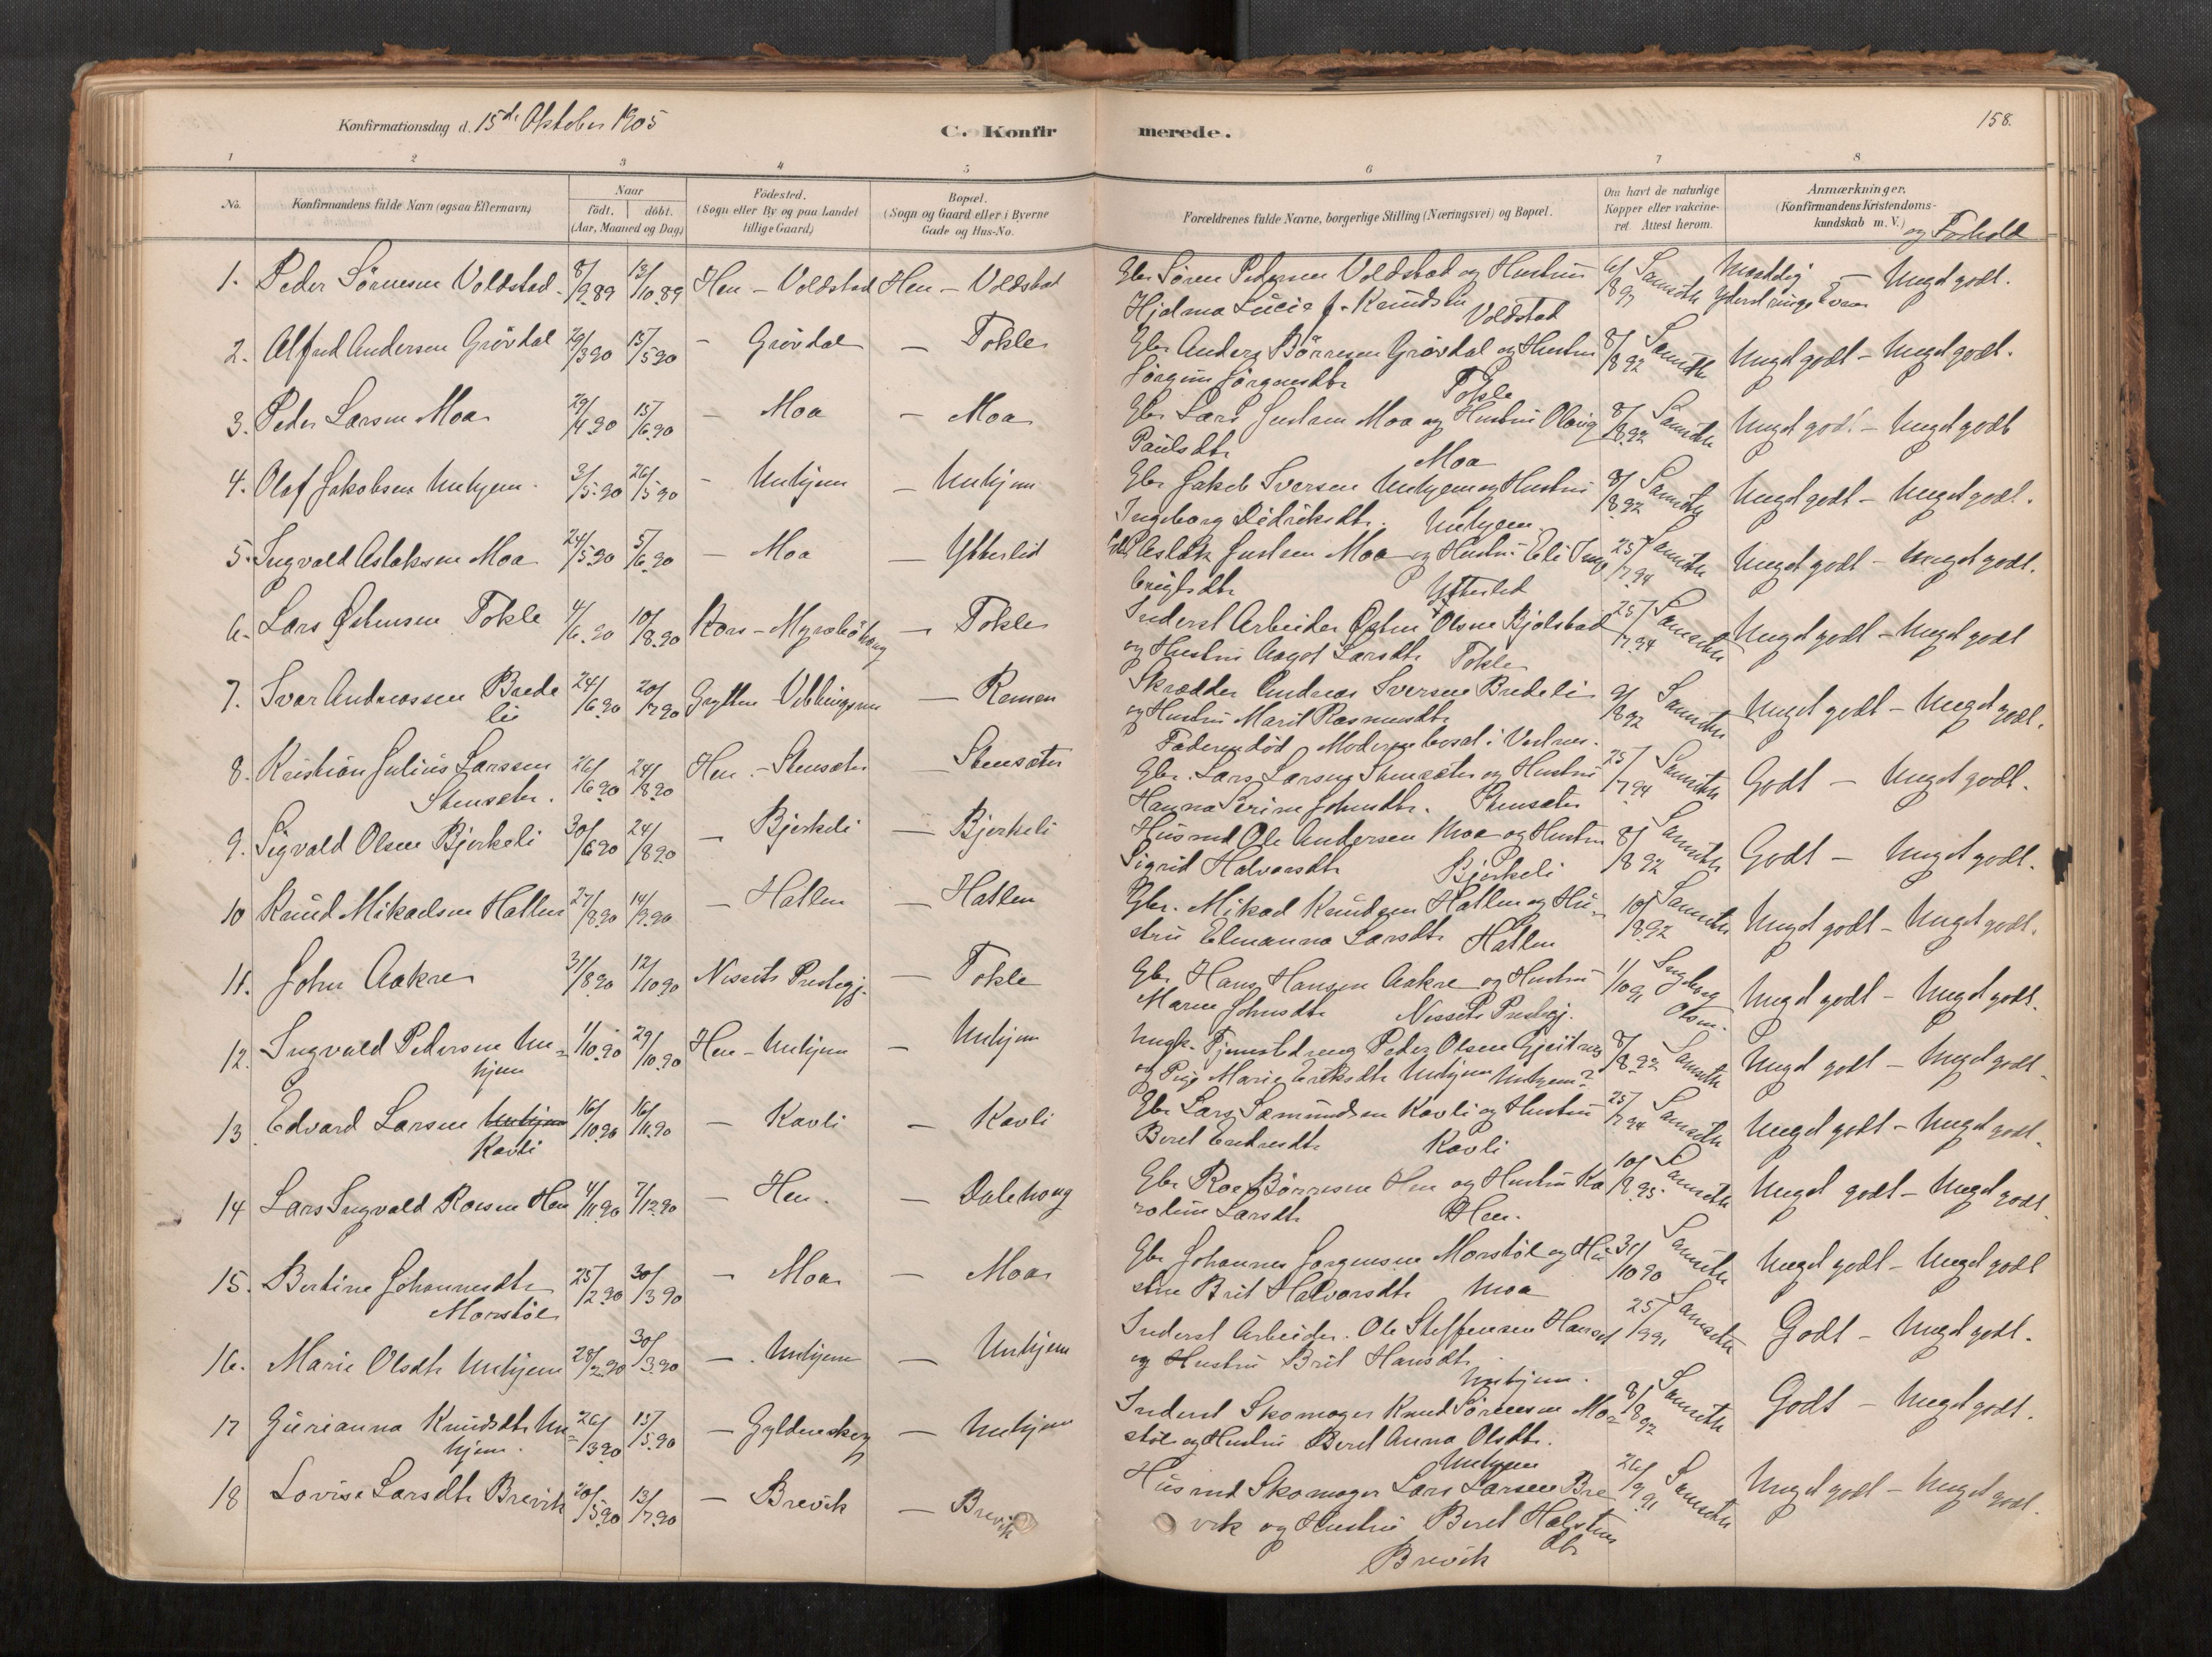 Konfirmationsdag d. 15de Oktober 1905
C. Konfirmerede.
158.
1 2 3 4 5 6 7 8
No. Konfirmandens fulde Navn (ogsaa Efternavn)
Naar
födt. döbt.
(Aar, Maaned og Dag)
Födested.
(Sogn eller By og paa Landet
tillige Gaard)
Bopæl.
(Sogn og Gaard eller i Byerne
Gade og Hus-No.
Forældrenes fulde Navne, borgerlige Stilling (Næringsvei) og Bopæl.
Om havt de naturlige
Kopper eller vakcine-
ret. Attest herom.
Anmærkninger.
(Konfirmandens Kristendoms-
kundskab m. V.) og Forhold
1. Peder Sörensen Voldstad 8/9 89 13/10 89 Hen - Voldstad Hen - Voldstad Gbr Sören Pedersen Voldstad og Hustru 6/8 97 Sanseth - Meget godt.
Hjelma Lucie f. Knudsen Voldstad
2. Alfred Andersen Grövdal 29/3 90 15/5 90 - Grövdal - Tokle Gbr Anders Börresen Grövdal og Hustru 8/8 92 Sanseth Meget godt - Meget godt.
Jörgine Jörgensdtr Tokle
3. Peder Larsen Moa 29/4 90 15/6 90 - Moa - Moa Gbr Lars Justsen Moa og Hustru Olavig 8/8 92 Sanseth Meget godt - Meget godt
Paulsdtr Moa
4. Olaf Jakobsen Unhjem. 3/5 90 26/5 90 - Unhjem - Unhjem Gbr Jakob Iversen Unhjem og Hustru 8/8 92 Sanseth Meget godt - Meget godt.
Ingeborg Didriksdtr. Unhjem
5. Ingvald Aslaksen Moa 24/5 90 5/6 90 - Moa - Ytterlid Aslak Justsen Moa og Hustru Eli Inge 25/7 94 Sanseth Meget godt - Meget godt.
brigtsdtr Ytterlid
6. Lars Östensen Tokle 4/6 90 10/8 90 Kors - Myreböhaug - Tokle Inderst Arbeider Östen Olsen Bjölstad 25/7 94 Sanseth Meget godt - Meget godt
og Hustru Aagot Larsdtr Tokle
7. Ivar Andreassen Brede 24/6 90 20/7 90 Grytten - - Remen Skrædder Andreas Iversen Bredeli 9/8 92 Sanseth Meget godt - Meget godt.
li og Hustru Marit Rasmusdtr
Faderen död Moderen bosat i Vestnes.
8. Kristian Julius Larssen 26/6 90 24/8 90 Hen - Stensæter - Stensæter Gbr. Lars Larsen Stensæter og Hustru 25/7 94 Sanseth Godt - Meget godt.
Stensæter. Hanna Serine Johnsdtr. Stensæter
9. Sigvald Olsen Bjerkeli 30/6 90 24/8 90 - Bjerkeli - Bjerkeli Husmd Ole Andersen Moa og Hustru 8/8 92 Sanseth Godt - Meget godt.
Sigrid Halvorsdtr Bjerkeli
10 Knud Mikaelsen Hatlen 27/8 90 14/9 90 - Hatlen - Hatlen Gbr. Mikael Knudsen Hatlen og Hu- 10/8 92 Sanseth Meget godt - Meget godt.
stru Elenanna Larsdtr Hatlen
11. John Aakre 31/8 90 12/10 90 Nissets Prestegj. - Tokle Gbr Hans Hansen Aakre og Hustru 1/10 91 Ingeborg Olsen. Meget godt - Meget godt.
Maren Johnsdtr Nissets Prestegj.
12. Ingvald Pedersen Un- 1/10 90 29/10 90 Hen - Unhjem - Unhjem Ungk. Tjenestedreng Peder Olsen Gjeitnes 8/8 92 Sanseth Meget godt - Meget godt.
hjem og Pige Marie Eriksdtr Unhjem Unhjem?
13. Edvard Larsen Unhjem 16/10 90 16/11 90 - Kavli - Kavli Gbr Lars Samundsen Kavli og Hustru 25/7 94 Sanseth Meget godt - Meget godt.
Kavli Beret Endresdtr Kavli
14 Lars Ingvald Roesen Hen 4/11 90 7/12 90 - Hen. - Dalehaug Gbr Roe Börresen Hen og Hustru Ka 10/8 95. Sanseth Meget godt - Meget godt.
roline Larsdtr Hen.
15. Bertine Johannesdtr 25/2 90 30/3 90 - Moa - Moa Gbr Johannes Jörgensen Morstöl og Hu 30/10 90 Sanseth Meget godt - Meget godt
Morstöl stru Brit Halvorsdtr Moa
16. Marie Olsdtr Unhjem 28/2 90 30/3 90 - Unhjem - Unhjem Inderst Arbeider. Ole Steffensen Hanset 25/9 91 Sanseth Godt - Meget godt.
og Hustru Brit Hansdtr Unhjem.
17 Gurianna Knudsdtr Un- 26/3 90 15/5 90 - Gyldenskog - Unhjem Inderst Skomager Knud Sörensen Mor- 8/8 92 Sanseth Godt - Meget godt.
hjem. stöl og Hustru Beret Anna Olsdtr.
Unhjem
18 Lovise Larsdtr Brevik 20/5 90 13/7 90 - Brevik - Brevik Husmd Skomager Lars Larsen Bre 26/9 91 Sanseth Meget godt - Meget godt.
vik og Hustru Beret Halstens
dtr
Brevik